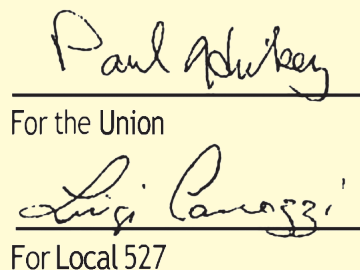 Paul Hickey
For the Union
Luigi Carrozzi
For Local 527